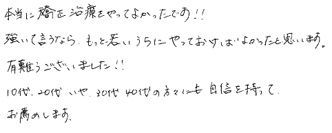 本当に矯正治療をやってよかったです!!
強いて言うなら、もっと若いうちにやっておけばよかったと思います。
有難うございました!!
10代、20代、いや、30代、40代の方々にも自信を持って、
お薦めします。